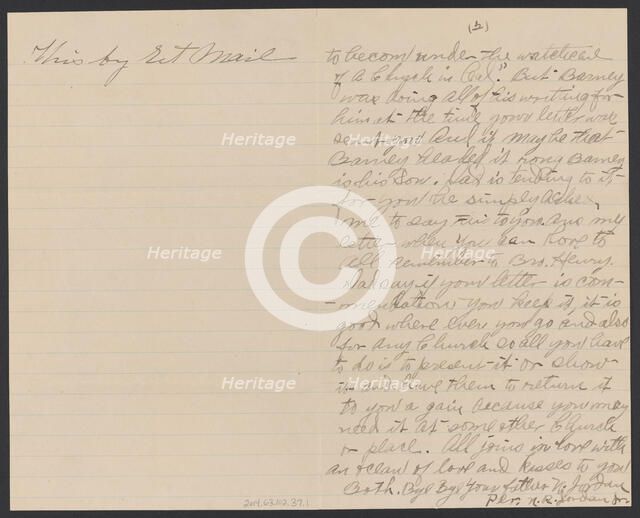 This by Ret Mail
(2)
to becom under the watchcare
of a Chych in Cal." But Barney
was doing all of his writing for
him at the time your letter was
sent you And it may be that
Barney headed it wrong Barney
is his Son. Dad is tending to it
for you He simply asked
me to say = to you. Ans my
letter when you can love to
all remember to Bro. Henry.
Dad say if your letter is com-
mendation you keep it, it is
good where ever you go and also
for any Church so all you have
to do is to present it or show
it and have them to return it
to you a gain because you may
need it at some other Church
or place. All joins in love with
an ocean of love and kisses to you
Both. Bye Bye Your father N. Jordan
Per. N. R. Jordan Jr
2014.63.102.37.1
Heritage Heritage Heritage
Heritage Heritage
Heritage Heritage Heritage
Heritage Heritage
C